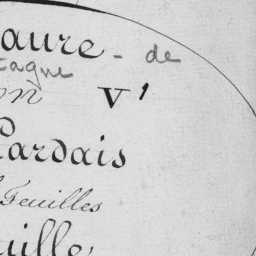 aure - de
tagne
on V'
Lardais
Feuilles
uille